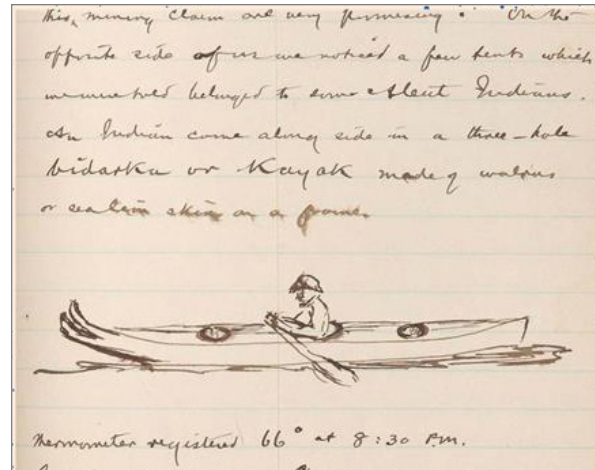 this, mining claim are very promising. On the
opposite side of us we noticed a few tents which
we were told belonged to some Aleut Indians.
An Indian come along side in a three-hole
bidarka or Kayak made of walrus
or sea lion skin on a frame.
Thermometer registered 66° at 8:30 P.M.